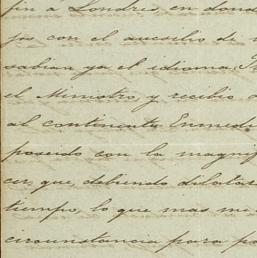 fin á Londres, en dond
jos con el aucsilio de
sabian ya el idioma.
el Ministro, y recibio
al continente. Enmedi
poseido con la magni
cer, que, debiendo dilatar
tiempo, lo que mas me
circunstancia para pa